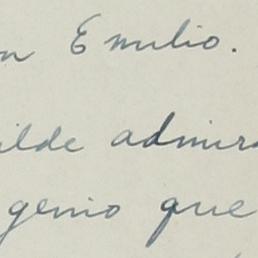 n Emilio.
ilde admira
genio que